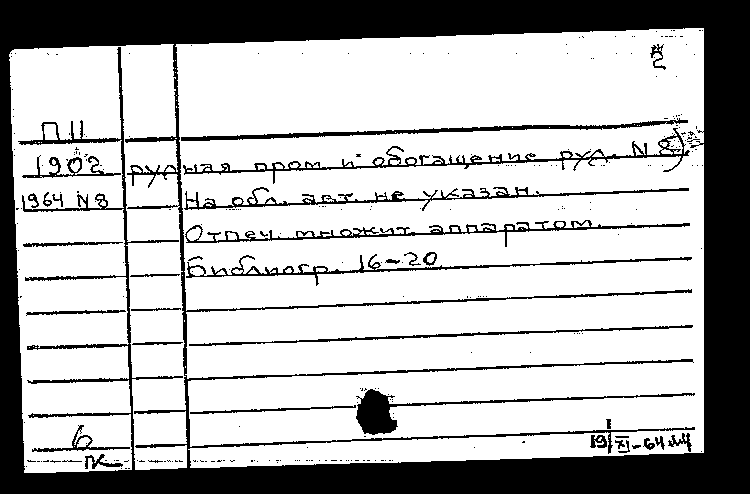 2
П 11
1902 рудная пром. и обогащение руд. N 8)
1964 N 8 На обл. авт. не указан.
Отпеч. множит. аппаратом.
Библиогр. 16-20
6
ПК
19 XI-64